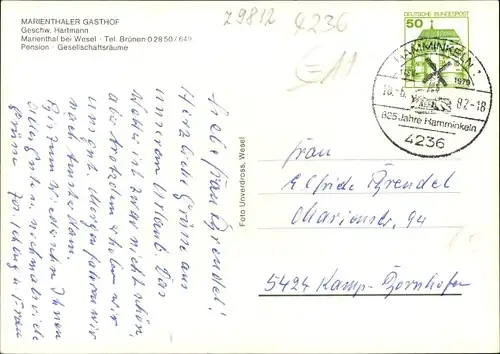 MARIENTHALER GASTHOF
Geschw. Hartmann
Marienthal bei Wesel · Tel. Brünen 0 28 50 / 649
Pension · Gesellschaftsräume
Z9812
4236
DEUTSCHE BUNDESPOST
50
HAMMINKELN 1
1154
1979
82-18
825 Jahre Hamminkeln
4236
Foto Unverdross, Wesel
Liebe Frau Brendel!
Herzliche Grüße aus
unserem Urlaub. Das
Wetter ist zwar nicht schön
aber trotzdem erholen wir
uns gut. Morgen fahren wir
nach Amsterdam.
wünschen Ihnen
nochmals viele
Grüße
Frau
Elfriede Brendel
Marienstr. 94
5424 Kamp-Bornhofen